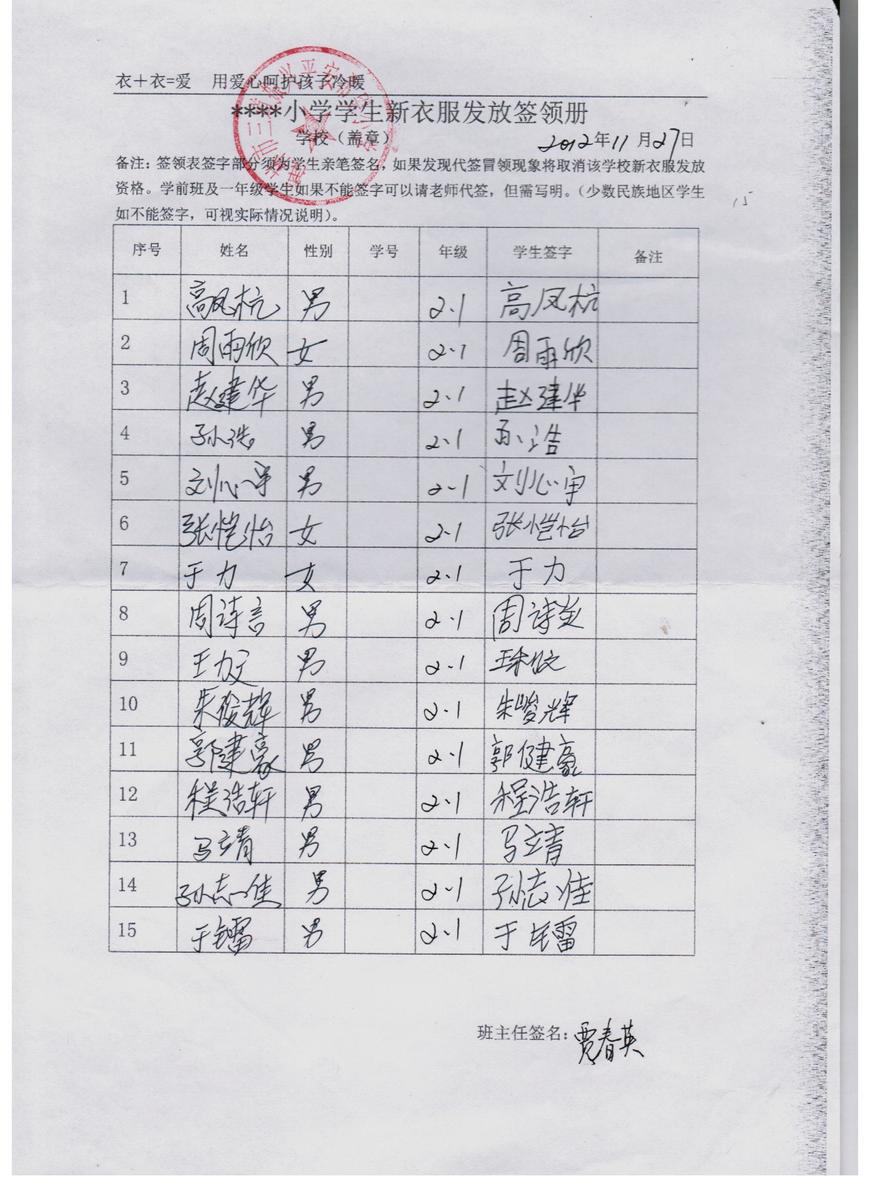 衣＋衣=爱 用爱心呵护孩子冷暖
****小学学生新衣服发放签领册
学校（盖章） 2012年11月27日
备注：签领表签字部分须为学生亲笔签名，如果发现代签冒领现象将取消该学校新衣服发放
资格。学前班及一年级学生如果不能签字可以请老师代签，但需写明。（少数民族地区学生
如不能签字，可视实际情况说明）。
15
序号 姓名 性别 学号 年级 学生签字 备注
1 高凤杭 男 2·1 高凤杭
2 周雨欣 女 2·1 周雨欣
3 赵建华 男 2·1 赵建华
4 孙浩 男 2·1 孙浩
5 刘心宇 男 2·1 刘心宇
6 张恺怡 女 2·1 张恺怡
7 于力 女 2·1 于力
8 周诗言 男 2·1 周诗
9 男 2·1
10 朱俊辉 男 2·1 朱峻辉
11 郭建豪 男 2·1 郭健豪
12 程浩轩 男 2·1 程浩轩
13 马立青 男 2·1 马立青
14 孙志佳 男 2·1 孙志佳
15 男 2·1
班主任签名：贾春英